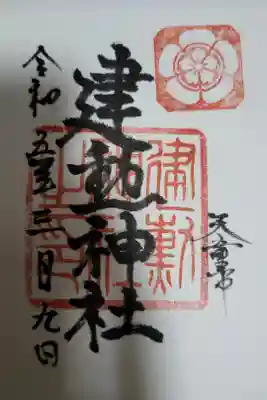 天童市
建勲神社
令和五年三月九日
建勲